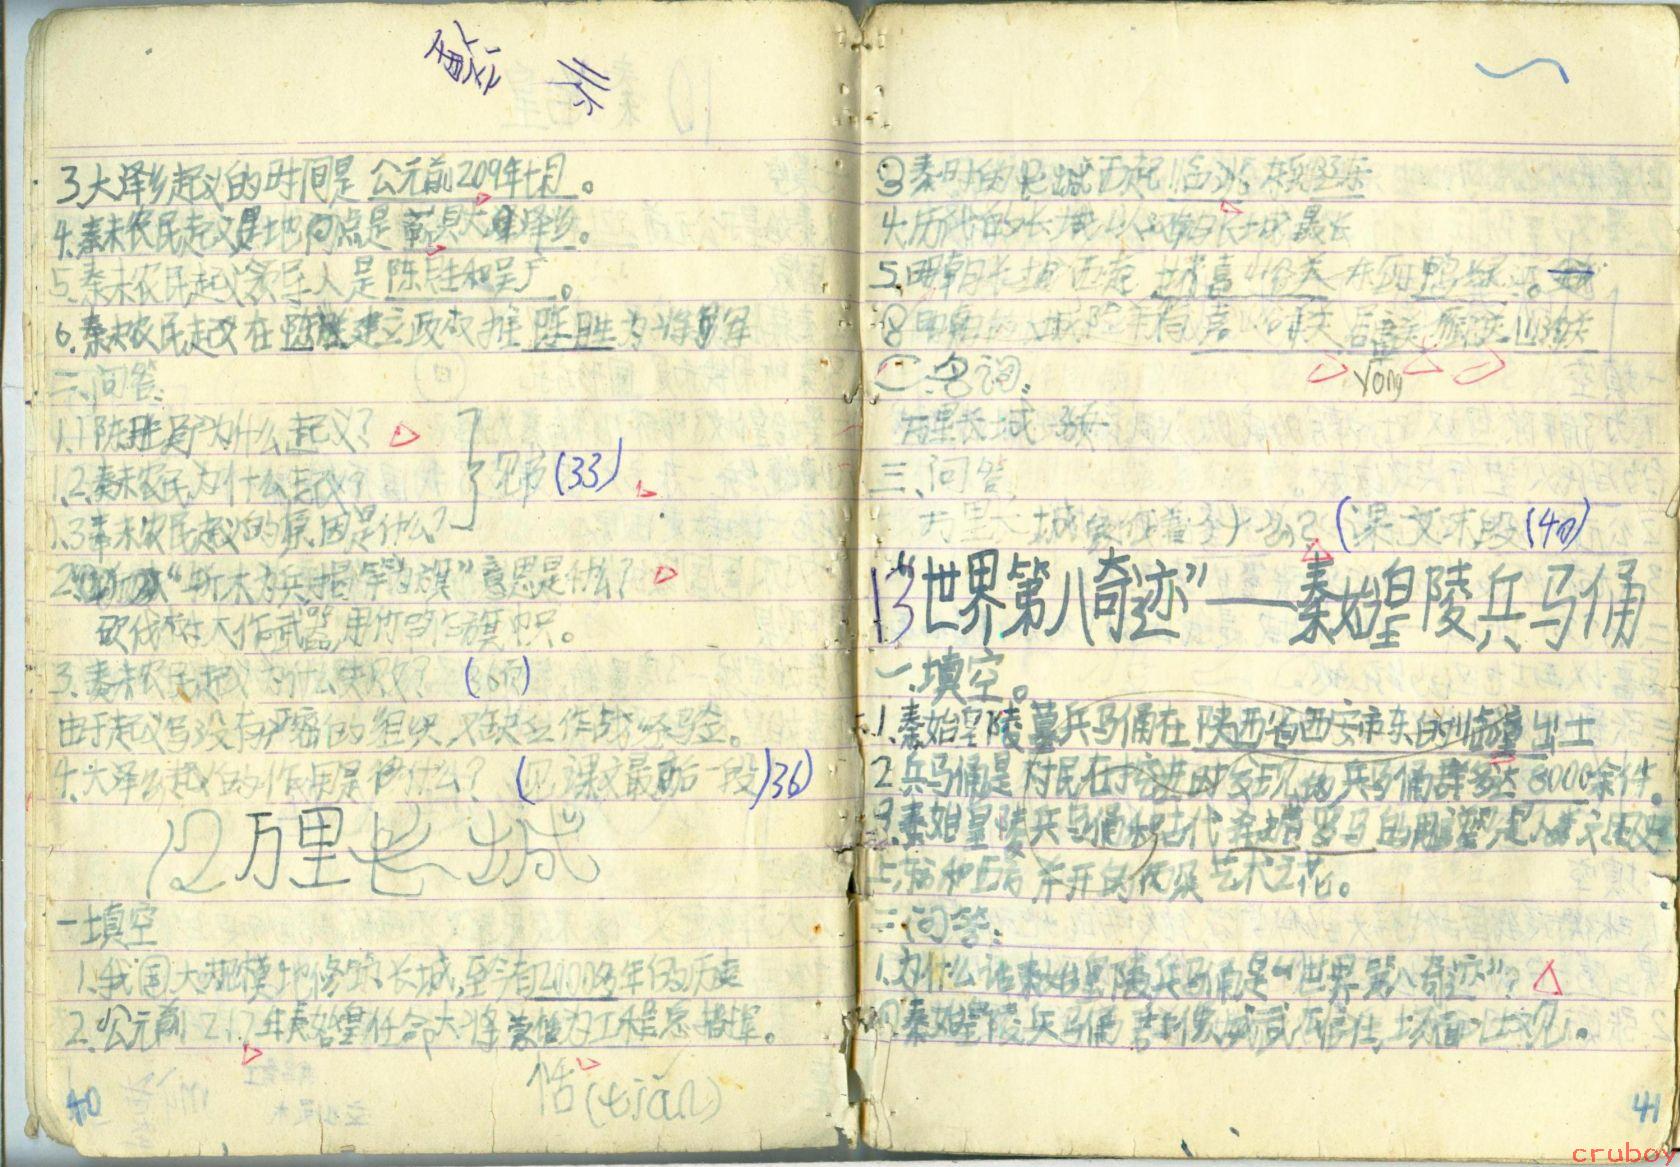 3.大泽乡起义的时间是公元前209年七月。
4.秦末农民起义地点是蕲县大泽乡。
5.秦末农民起义领导人是陈胜和吴广。
6.秦末农民起义在建立政权推陈胜为将军
二、问答:
1.1陈胜吴广为什么起义?
1.2.秦末农民为什么起义? 见书(33)
1.3秦末农民起义的原因是什么?
2."斩木为兵揭竿为旗"意思是什么?
砍伐树木作武器,用竹竿作旗帜。
3.秦末农民起义为什么失败? (36页)
由于起义军没有严密的组织,又缺乏作战经验。
4.大泽乡起义的作用是什么? (见课文最后一段)36)
12万里长城
一填空
1.我国大规模地修筑长城,至今有2000多年的历史
2.公元前217年秦始皇任命大将蒙恬为工程总指挥。
恬(tián)
40
③秦时的长城西起临洮,东到辽东
4.历代的长城以明长城最长
5.明朝长城西起嘉峪关东到鸭绿江。
二、名词:
万里长城
三、问答
万里长城象征着什么?(课文末段(40)
13"世界第八奇迹"——秦始皇陵兵马俑
一.填空。
1.秦始皇陵墓兵马俑在陕西省西安市东的临潼出土
2.兵马俑是村民在挖井时发现的,兵马俑群多达8000余件。
3.秦始皇陵兵马俑和古代希腊罗马的雕塑
艺术之花。
二问答:
1.为什么说秦始皇陵兵马俑是"世界第八奇迹"?
秦始皇陵兵马俑
41
cruboy